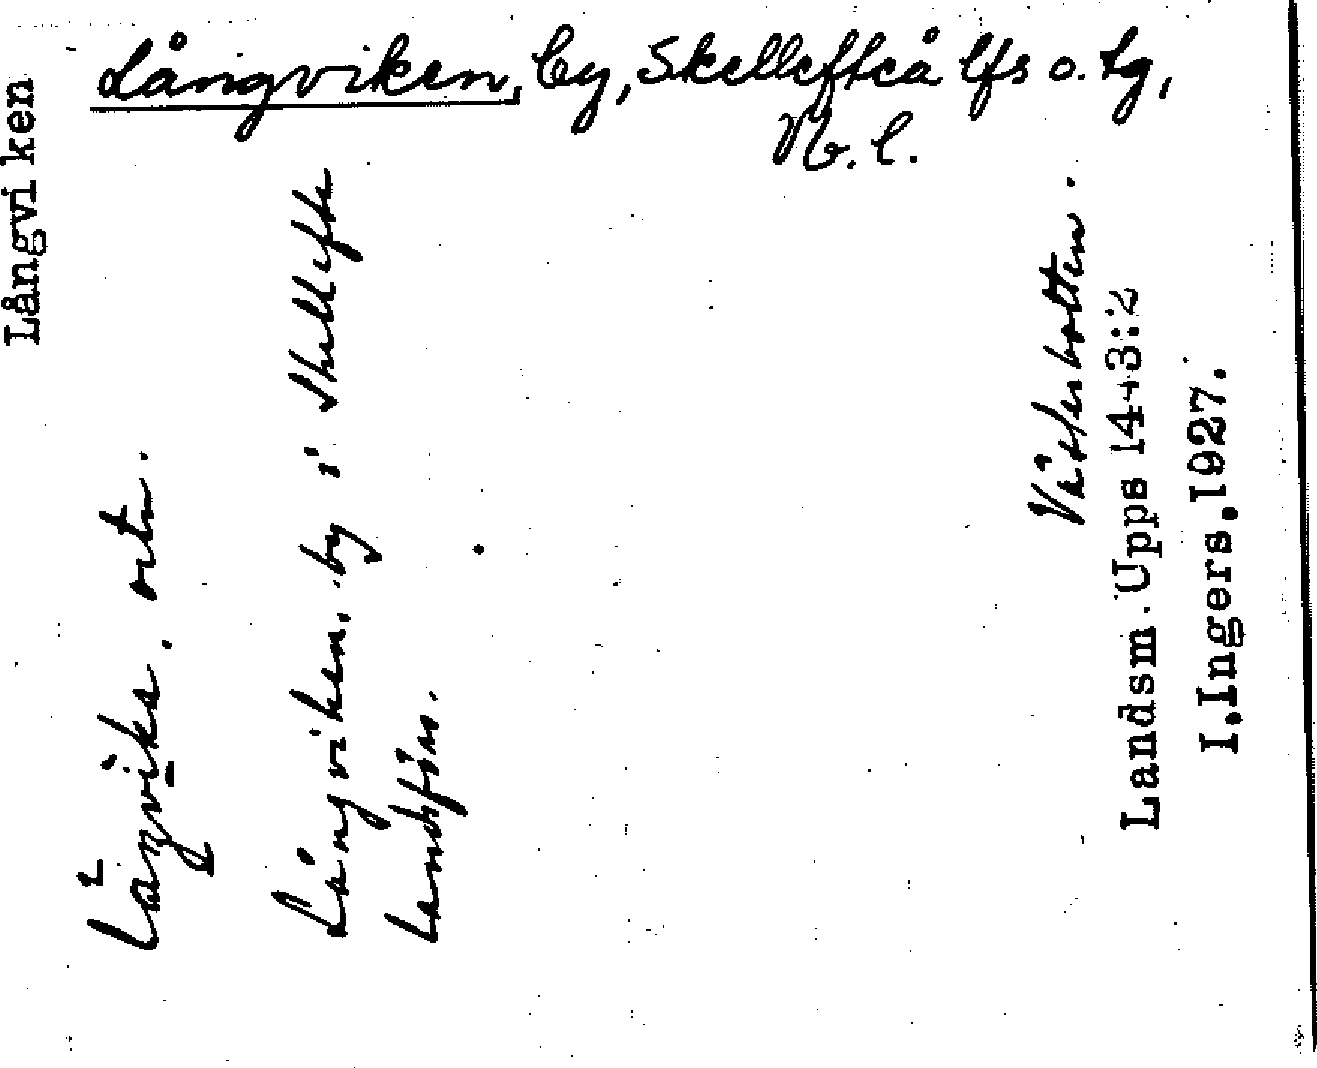 Långviken, by, Skellefteå lfs o. tg,
Vb. l.
Långviken
Långvika, ortn.
Långviken, by i Skellefte
landsförs.
Västerbotten.
Landsm. Upps 1443:2
I. Ingers, 1927.